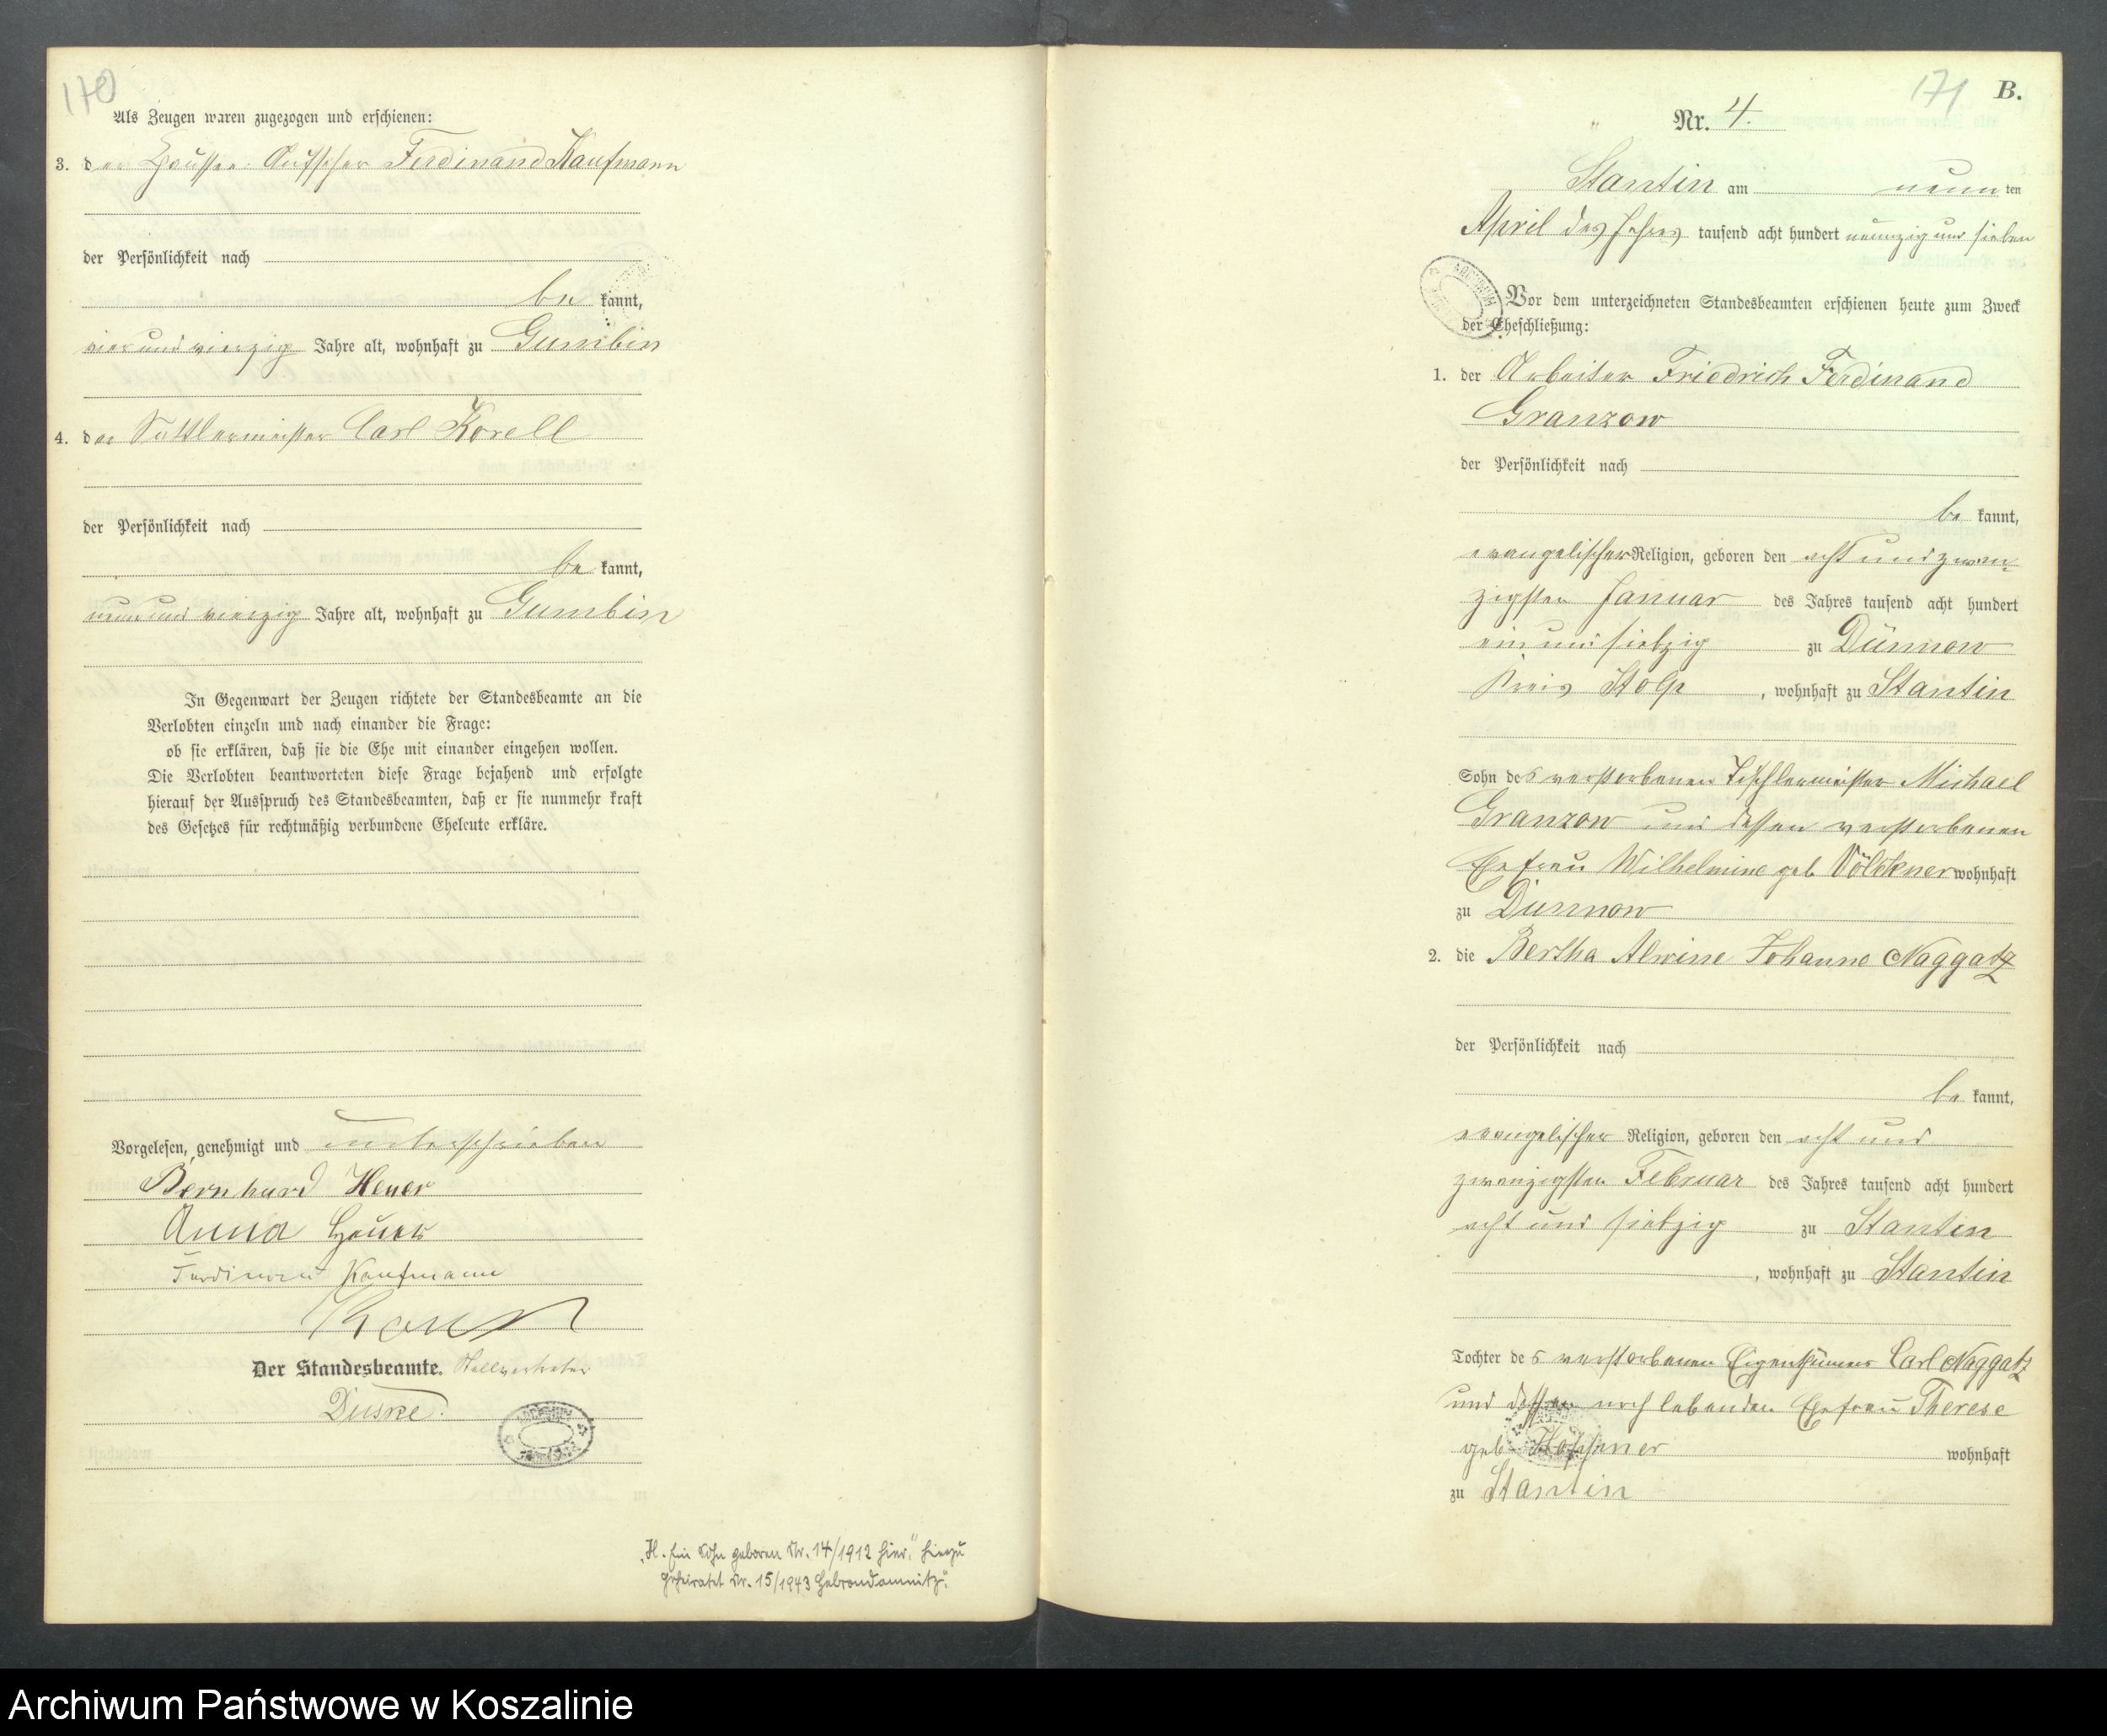 170
Als Zeugen waren zugezogen und erschienen:
3. der Chaussee-Aufseher Ferdinand Kaufmann
der Persönlichkeit nach
be kannt,
vier und vierzig Jahre alt, wohnhaft zu Gumbin
4. der Sattlermeister Carl Korell
der Persönlichkeit nach
be kannt,
neun und vierzig Jahre alt, wohnhaft zu Gumbin
In Gegenwart der Zeugen richtete der Standesbeamte an die
Verlobten einzeln und nach einander die Frage:
ob sie erklären, daß sie die Ehe mit einander eingehen wollen.
Die Verlobten beantworteten diese Frage bejahend und erfolgte
hierauf der Ausspruch des Standesbeamten, daß er sie nunmehr kraft
des Gesetzes für rechtmäßig verbundene Eheleute erkläre.
Vorgelesen, genehmigt und unterschrieben
Bernhard Heuer
Anna Heuer
Ferdinand Kaufmann
Der Standesbeamte. Stellvertreter
„H. Ein Sohn geboren Nr. 14/1912 hier." hierzu
geheiratet Nr. 15/1943 Hebrondamnitz".
171 B.
Nr. 4.
Stantin am neun ten
April des Jahres tausend acht hundert neunzig und sieben
Vor dem unterzeichneten Standesbeamten erschienen heute zum Zweck
der Eheschließung:
1. der Arbeiter Friedrich Ferdinand
Granzow
der Persönlichkeit nach
be kannt,
evangelischer Religion, geboren den acht und zwan-
zigsten Januar des Jahres tausend acht hundert
ein und siebzig zu Dünnow
Kreis Stolp, wohnhaft zu Stantin
Sohn des verstorbenen Tischlermeister Michael
Granzow und dessen verstorbenen
Ehefrau Wilhelmine geb Völckner wohnhaft
zu Dünnow
2. die Bertha Alwine Johanne Naggatz
der Persönlichkeit nach
be kannt,
evangelischer Religion, geboren den acht und
zwanzigsten Februar des Jahres tausend acht hundert
acht und siebzig zu Stantin
, wohnhaft zu Stantin
Tochter des verstorbenen Eigenthümers Carl Naggatz
und dessen noch lebenden Ehefrau Therese
geb wohnhaft
zu Stantin
Archiwum Państwowe w Koszalinie